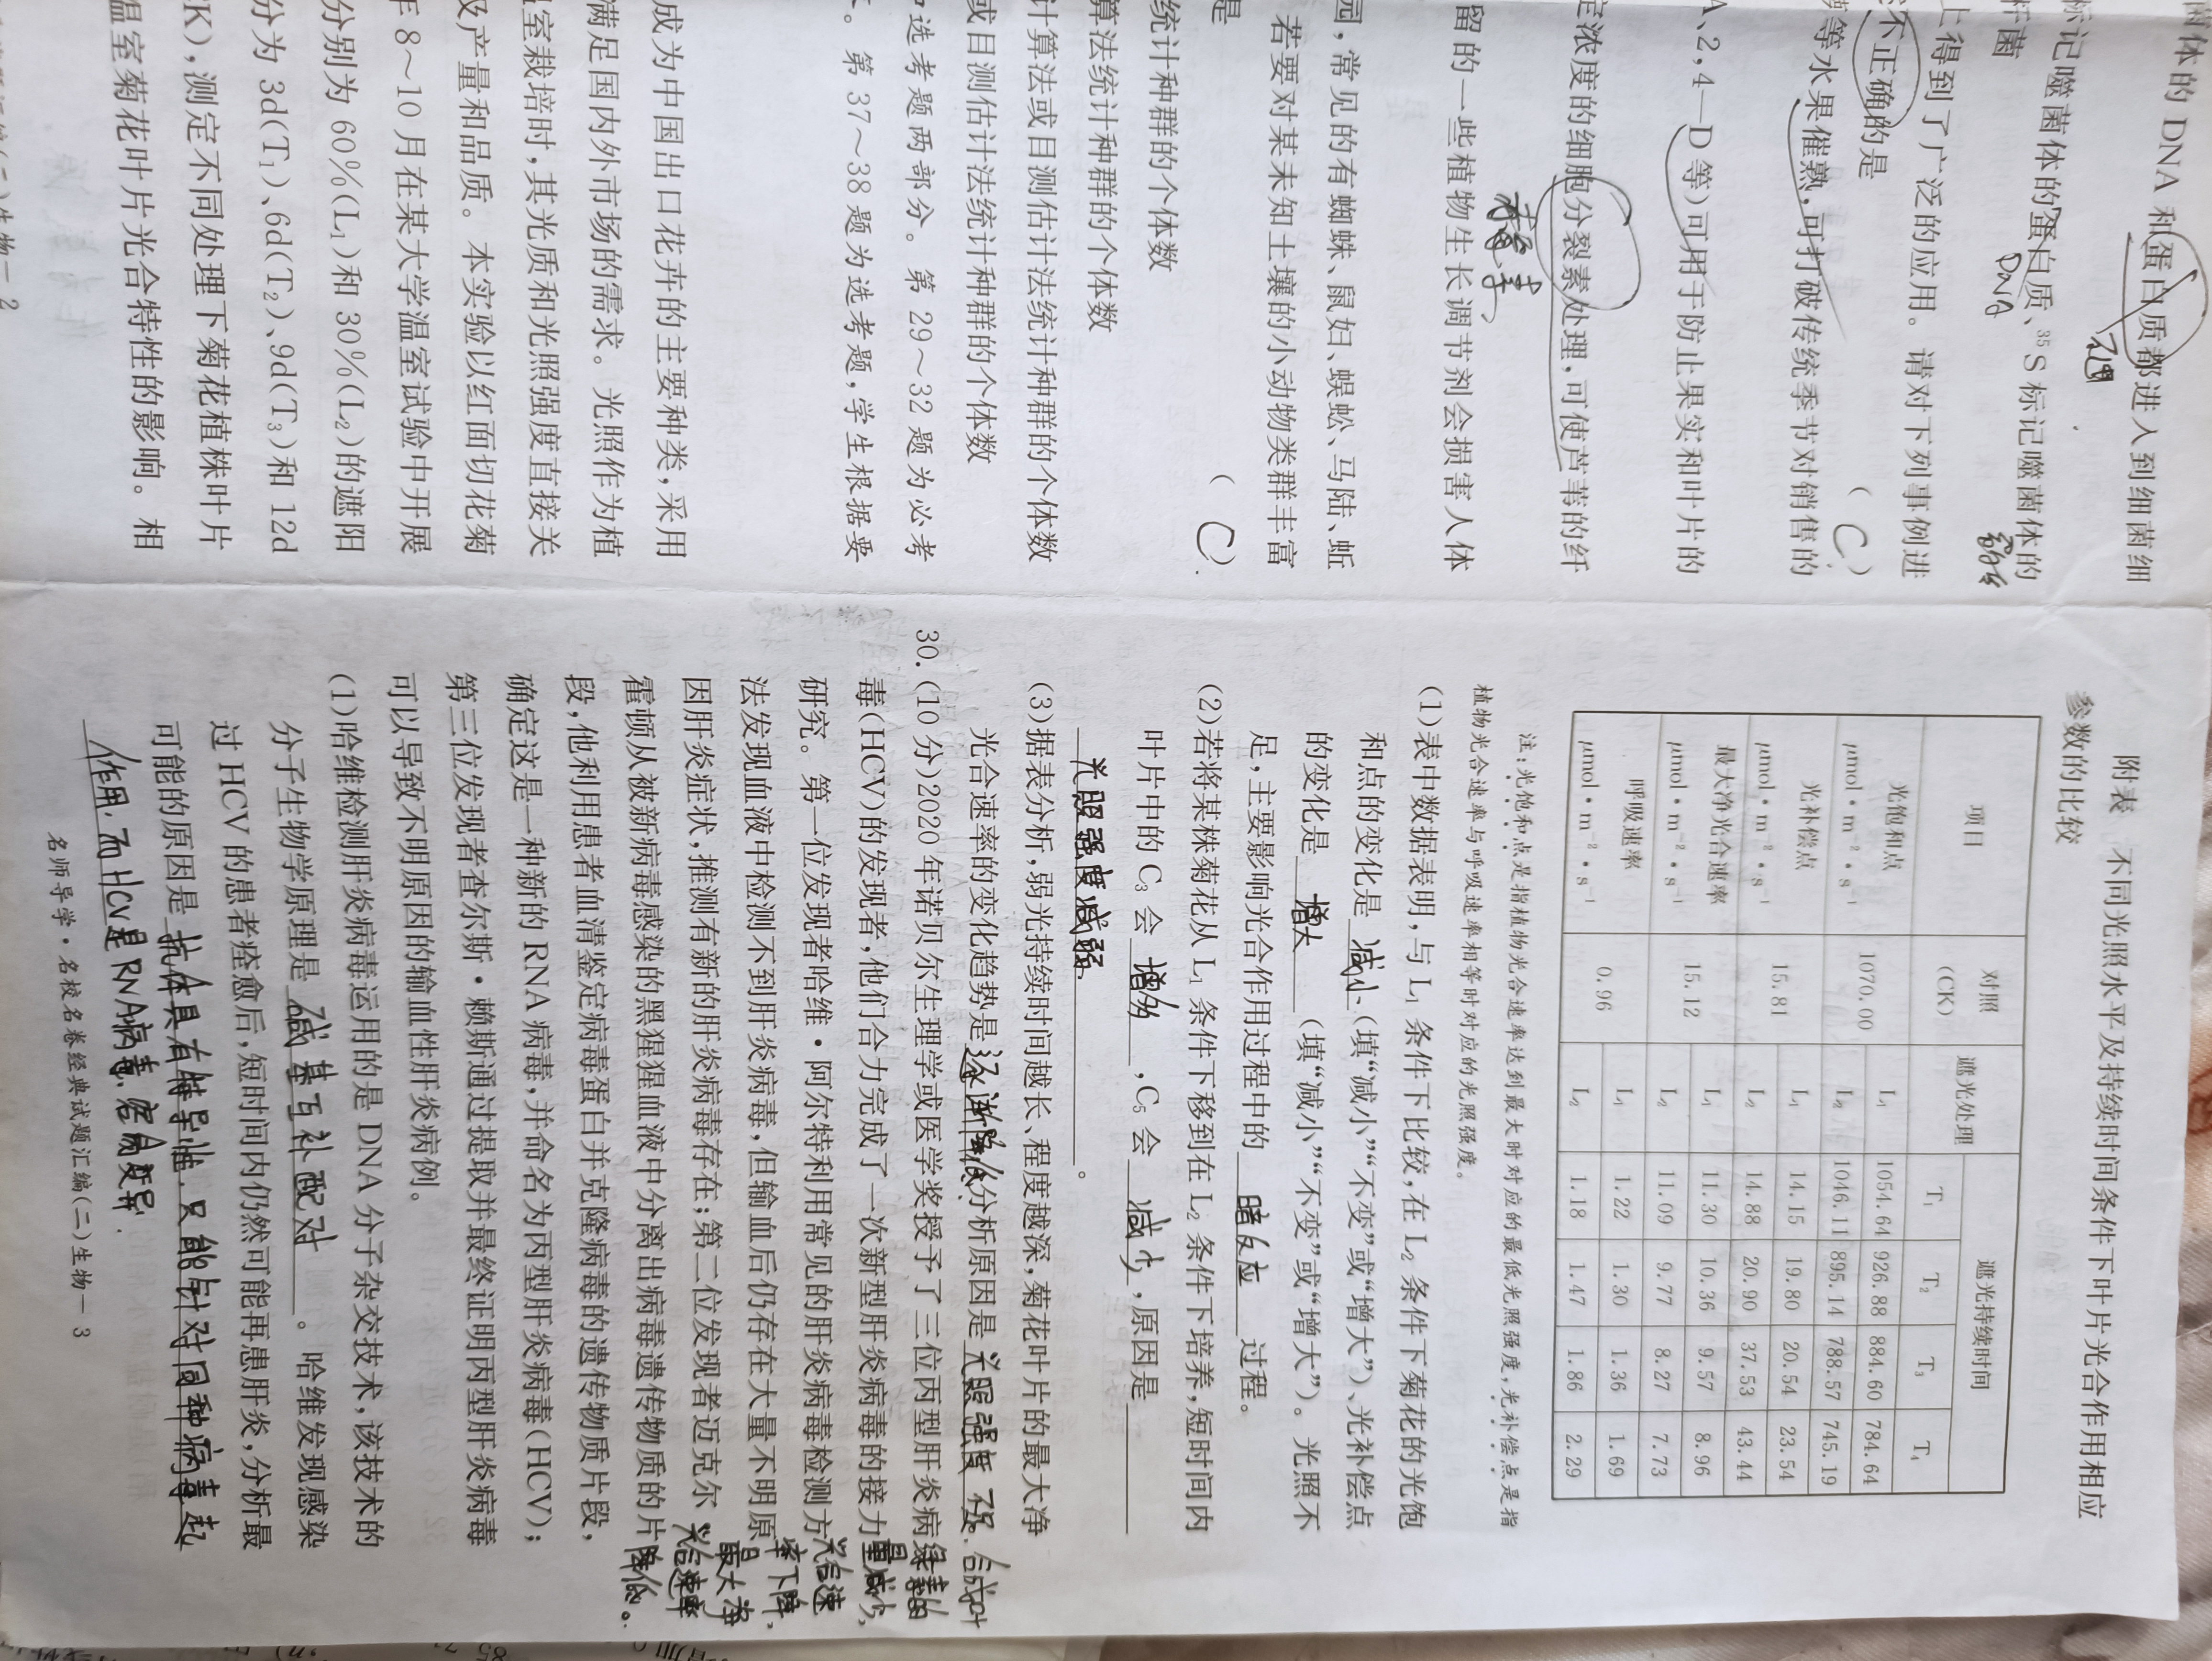 菌体的 DNA 和蛋白质都进入到细菌细
标记噬菌体的蛋白质、³⁵S 标记噬菌体的
DNA
标菌
上得到了广泛的应用。请对下列事例进
不正确的是
( C )
等水果催熟,可打破传统季节对销售的
A、2,4—D 等)可用于防止果实和叶片的
定浓度的细胞分裂素处理,可使芦苇的纤
留的一些植物生长调节剂会损害人体
园,常见的有蜘蛛、鼠妇、蜈蚣、马陆、蚯
若要对某未知土壤的小动物类群丰富
是
( C )
统计种群的个体数
算法统计种群的个体数
计算法或目测估计法统计种群的个体数
或目测估计法统计种群的个体数
选考题两部分。第 29～32 题为必考
。第 37～38 题为选考题,学生根据要
成为中国出口花卉的主要种类,采用
满足国内外市场的需求。光照作为植
室栽培时,其光质和光照强度直接关
及产量和品质。本实验以红面切花菊
年 8～10 月在某大学温室试验中开展
分别为 60%(L₁)和 30%(L₂)的遮阳
分为 3d(T₁)、6d(T₂)、9d(T₃)和 12d
CK),测定不同处理下菊花植株叶片
温室菊花叶片光合特性的影响。相
(二)生物—2
附表 不同光照水平及持续时间条件下叶片光合作用相应
参数的比较
项目 对照(CK) 遮光处理 遮光持续时间
T₁ T₂ T₃ T₄
光饱和点 μmol·m⁻²·s⁻¹ 1070.00 L₁ 1054.64 926.88 884.60 784.64
L₂ 1046.11 895.14 788.57 745.19
光补偿点 μmol·m⁻²·s⁻¹ 15.81 L₁ 14.15 19.80 20.54 23.54
L₂ 14.88 20.90 37.53 43.44
最大净光合速率 μmol·m⁻²·s⁻¹ 15.12 L₁ 11.30 10.36 9.57 8.96
L₂ 11.09 9.77 8.27 7.73
呼吸速率 μmol·m⁻²·s⁻¹ 0.96 L₁ 1.22 1.30 1.36 1.69
L₂ 1.18 1.47 1.86 2.29
注:光饱和点是指植物光合速率达到最大时对应的最低光照强度,光补偿点是指
植物光合速率与呼吸速率相等时对应的光照强度。
(1)表中数据表明,与 L₁ 条件下比较,在 L₂ 条件下菊花的光饱
和点的变化是 减小 (填“减小”“不变”或“增大”)、光补偿点
的变化是 增大 (填“减小”“不变”或“增大”)。光照不
足,主要影响光合作用过程中的 暗反应 过程。
(2)若将某株菊花从 L₁ 条件下移到在 L₂ 条件下培养,短时间内
叶片中的 C₃ 会 增多 ,C₅ 会 减少 ,原因是
光照强度减弱 。
(3)据表分析,弱光持续时间越长、程度越深,菊花叶片的最大净
光合速率的变化趋势是逐渐降低.分析原因是 光照强度不足.合成叶
绿素的
量减少,
光合速
率下降,
最大净
光合速率
降低。
30.(10 分)2020 年诺贝尔生理学或医学奖授予了三位丙型肝炎病
毒(HCV)的发现者,他们合力完成了一次新型肝炎病毒的接力
研究。第一位发现者哈维·阿尔特利用常见的肝炎病毒检测方
法发现血液中检测不到肝炎病毒,但输血后仍存在大量不明原
因肝炎症状,推测有新的肝炎病毒存在;第二位发现者迈克尔·
霍顿从被新病毒感染的黑猩猩血液中分离出病毒遗传物质的片
段,他利用患者血清鉴定病毒蛋白并克隆病毒的遗传物质片段,
确定这是一种新的 RNA 病毒,并命名为丙型肝炎病毒(HCV);
第三位发现者查尔斯·赖斯通过提取并最终证明丙型肝炎病毒
可以导致不明原因的输血性肝炎病例。
(1)哈维检测肝炎病毒运用的是 DNA 分子杂交技术,该技术的
分子生物学原理是 碱基互补配对 。哈维发现感染
过 HCV 的患者痊愈后,短时间内仍然可能再患肝炎,分析最
可能的原因是 抗体具有特异性,只能针对同种病毒起
作用.而HCV是RNA病毒.容易变异.
名师导学·名校名卷经典试题汇编(二)生物—3